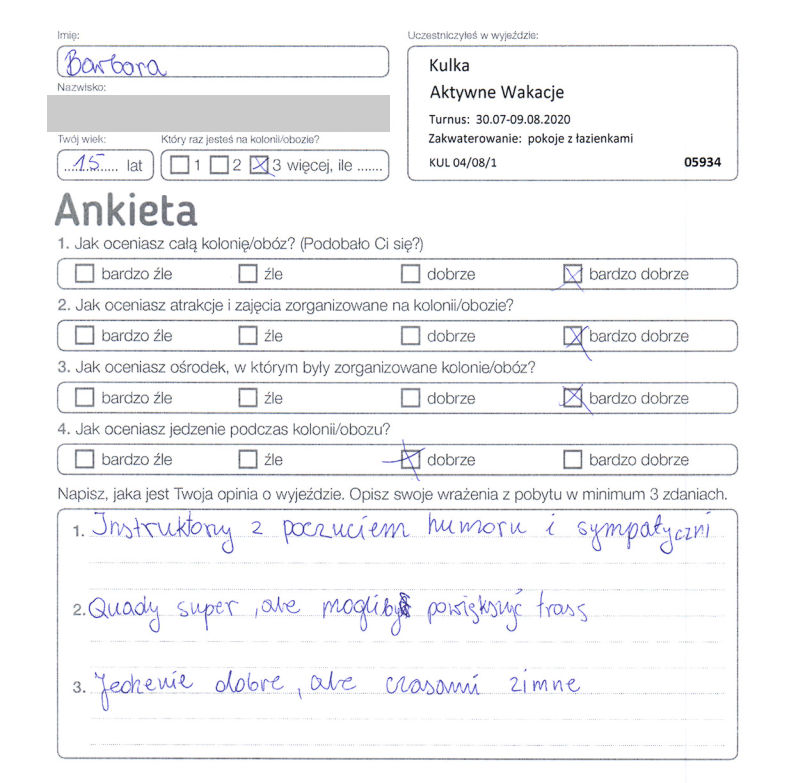 Imię:
Barbara
Nazwisko:
Twój wiek:
Który raz jesteś na kolonii/obozie?
15 lat
1 2 3 więcej, ile .......
Uczestniczyłeś w wyjeździe:
Kulka
Aktywne Wakacje
Turnus: 30.07-09.08.2020
Zakwaterowanie: pokoje z łazienkami
KUL 04/08/1 05934
Ankieta
1. Jak oceniasz całą kolonię/obóz? (Podobało Ci się?)
bardzo źle źle dobrze bardzo dobrze
2. Jak oceniasz atrakcje i zajęcia zorganizowane na kolonii/obozie?
bardzo źle źle dobrze bardzo dobrze
3. Jak oceniasz ośrodek, w którym były zorganizowane kolonie/obóz?
bardzo źle źle dobrze bardzo dobrze
4. Jak oceniasz jedzenie podczas kolonii/obozu?
bardzo źle źle dobrze bardzo dobrze
Napisz, jaka jest Twoja opinia o wyjeździe. Opisz swoje wrażenia z pobytu w minimum 3 zdaniach.
1. Instruktorzy z poczuciem humoru i sympatyczni
2. Quady super, ale mogliby powiększyć trasę
3. Jedzenie dobre, ale czasami zimne